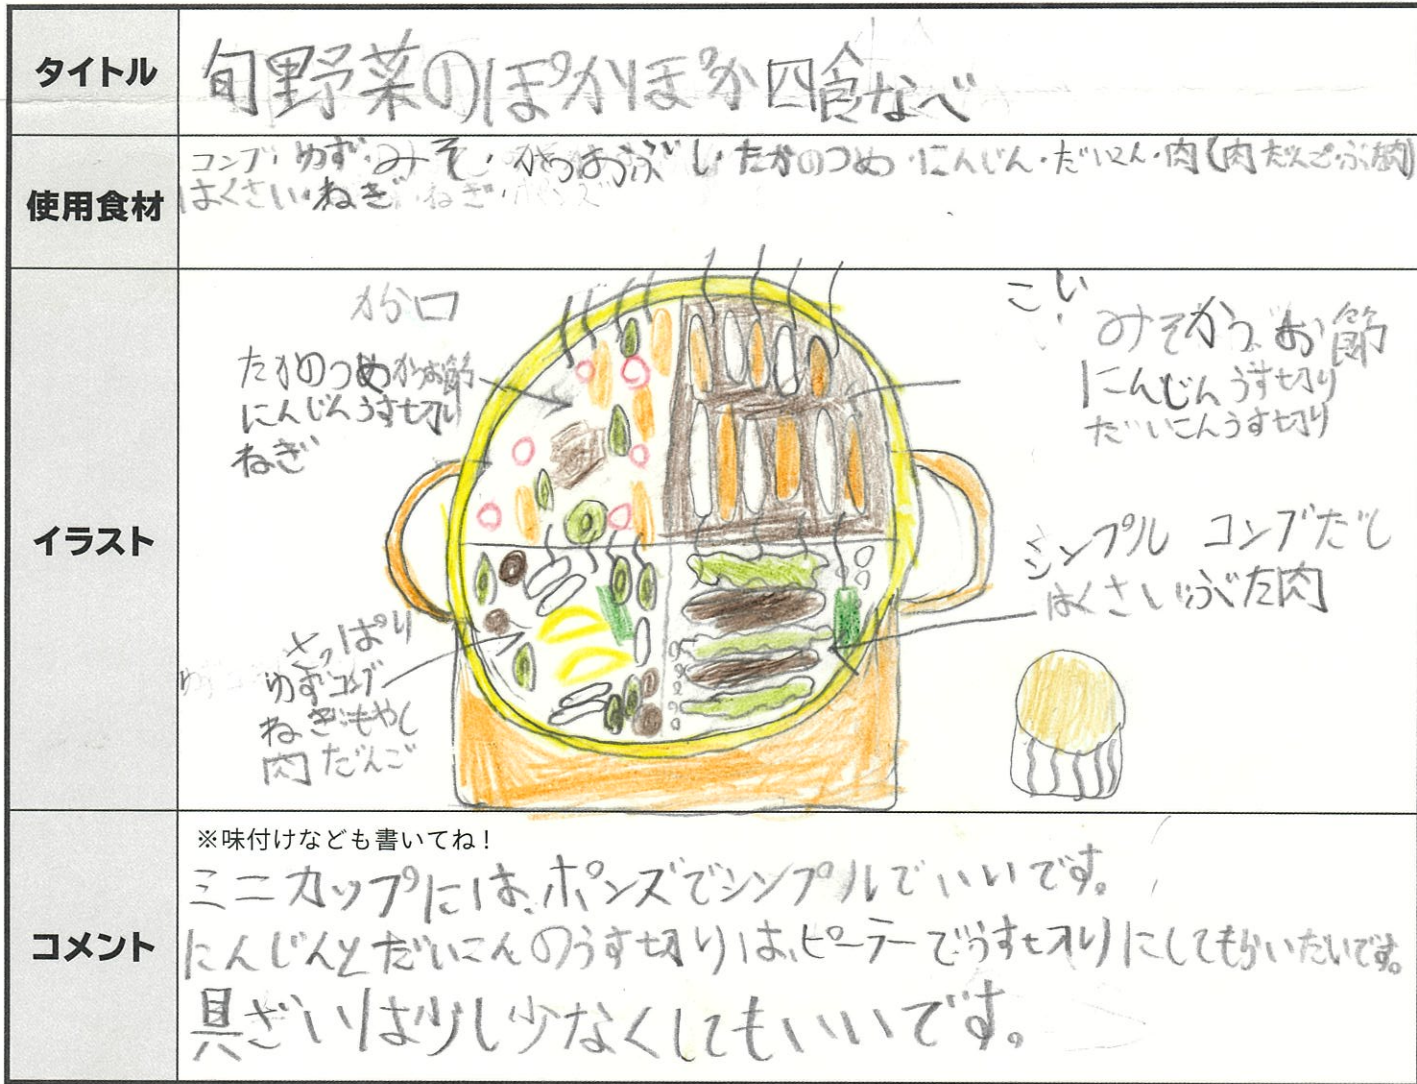 タイトル
旬野菜のぽかぽか四食なべ
使用食材
コンブ・ゆず・みそ・かつおぶし・たかのつめ・にんじん・だいこん・肉(肉だんご・ぶた肉)
はくさい・ねぎ
イラスト
から口
たかのつめかつお節
にんじんうす切り
ねぎ
こい
みそかつお節
にんじんうす切り
だいこんうす切り
シンプル コンブだし
はくさいぶた肉
さっぱり
ゆずコンブ
ねぎもやし
肉だんご
コメント
※味付けなども書いてね!
ミニカップには、ポンズでシンプルでいいです。
にんじんとだいこんのうす切りは、ピーラーでうす切りにしてもらいたいです。
具ざいは少し少なくしてもいいです。